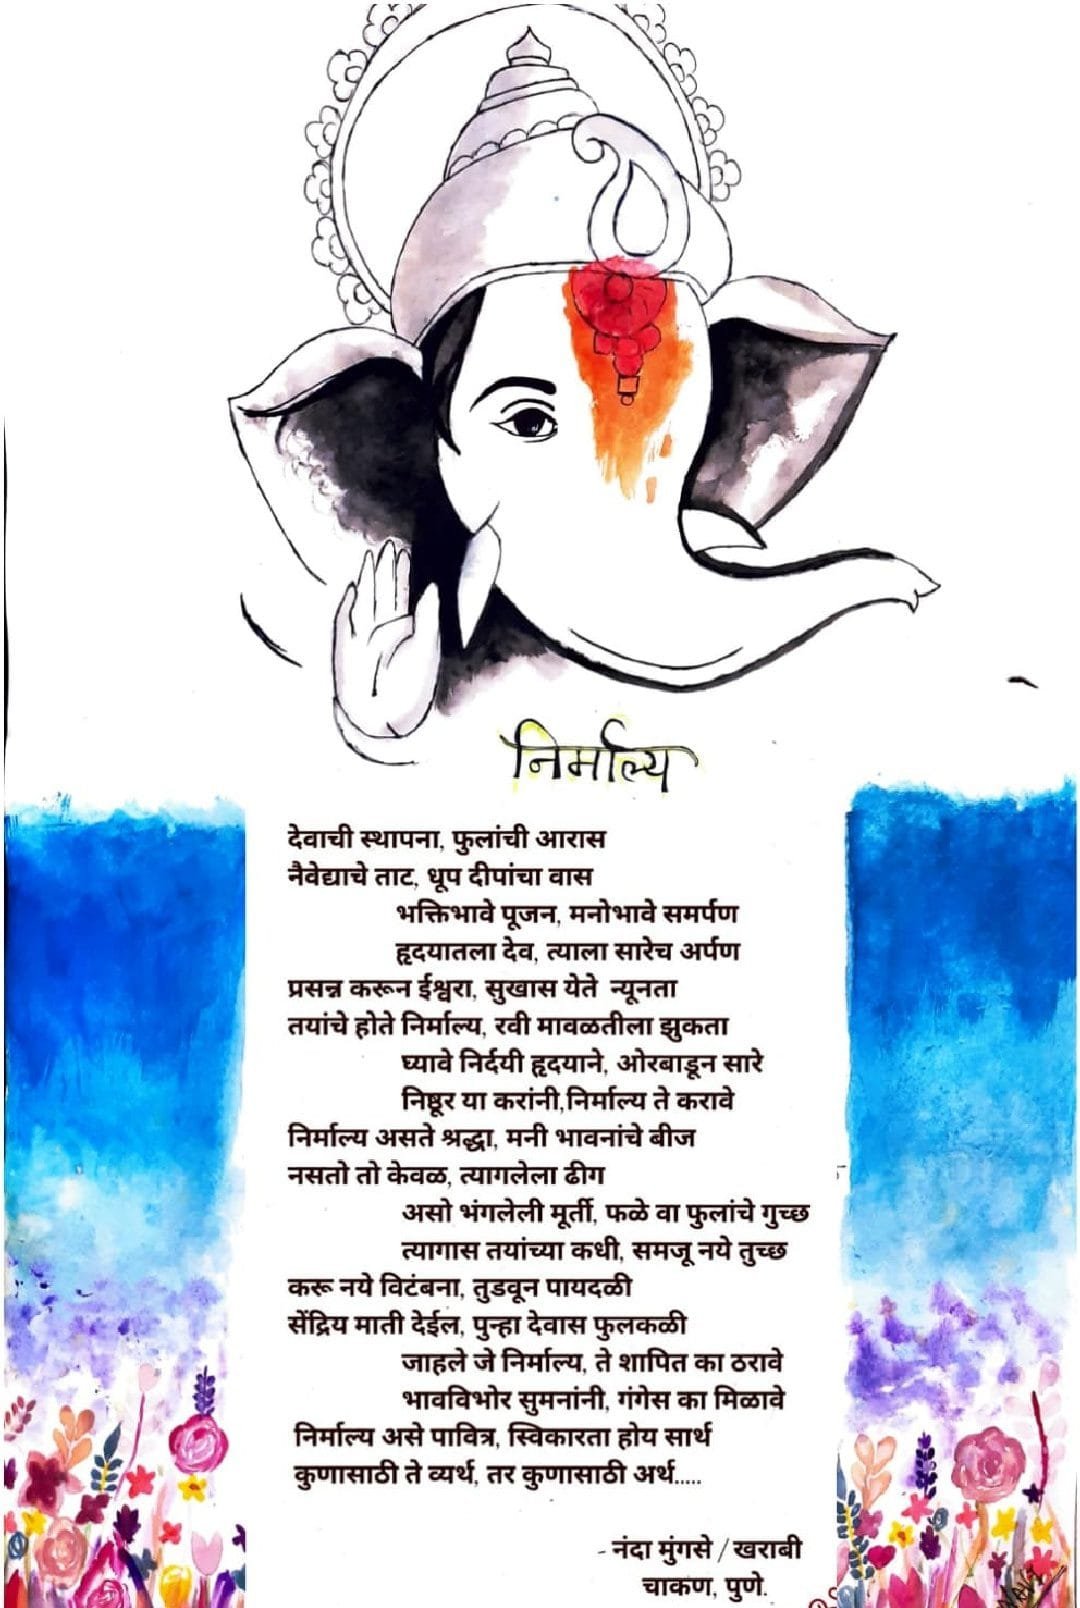 निर्माल्य
देवाची स्थापना, फुलांची आरास
नैवेद्याचे ताट, धूप दीपांचा वास
भक्तिभावे पूजन, मनोभावे समर्पण
हृदयातला देव, त्याला सारेच अर्पण
प्रसन्न करून ईश्वरा, सुखास येते न्यूनता
तयांचे होते निर्माल्य, रवी मावळतीला झुकता
घ्यावे निर्दयी हृदयाने, ओरबाडून सारे
निष्ठूर या करांनी,निर्माल्य ते करावे
निर्माल्य असते श्रद्धा, मनी भावनांचे बीज
नसतो तो केवळ, त्यागलेला ढीग
असो भंगलेली मूर्ती, फळे वा फुलांचे गुच्छ
त्यागास तयांच्या कधी, समजू नये तुच्छ
करू नये विटंबना, तुडवून पायदळी
सेंद्रिय माती देईल, पुन्हा देवास फुलकळी
जाहले जे निर्माल्य, ते शापित का ठरावे
भावविभोर सुमनांनी, गंगेस का मिळावे
निर्माल्य असे पावित्र, स्विकारता होय सार्थ
कुणासाठी ते व्यर्थ, तर कुणासाठी अर्थ.....
- नंदा मुंगसे / खराबी
चाकण, पुणे.